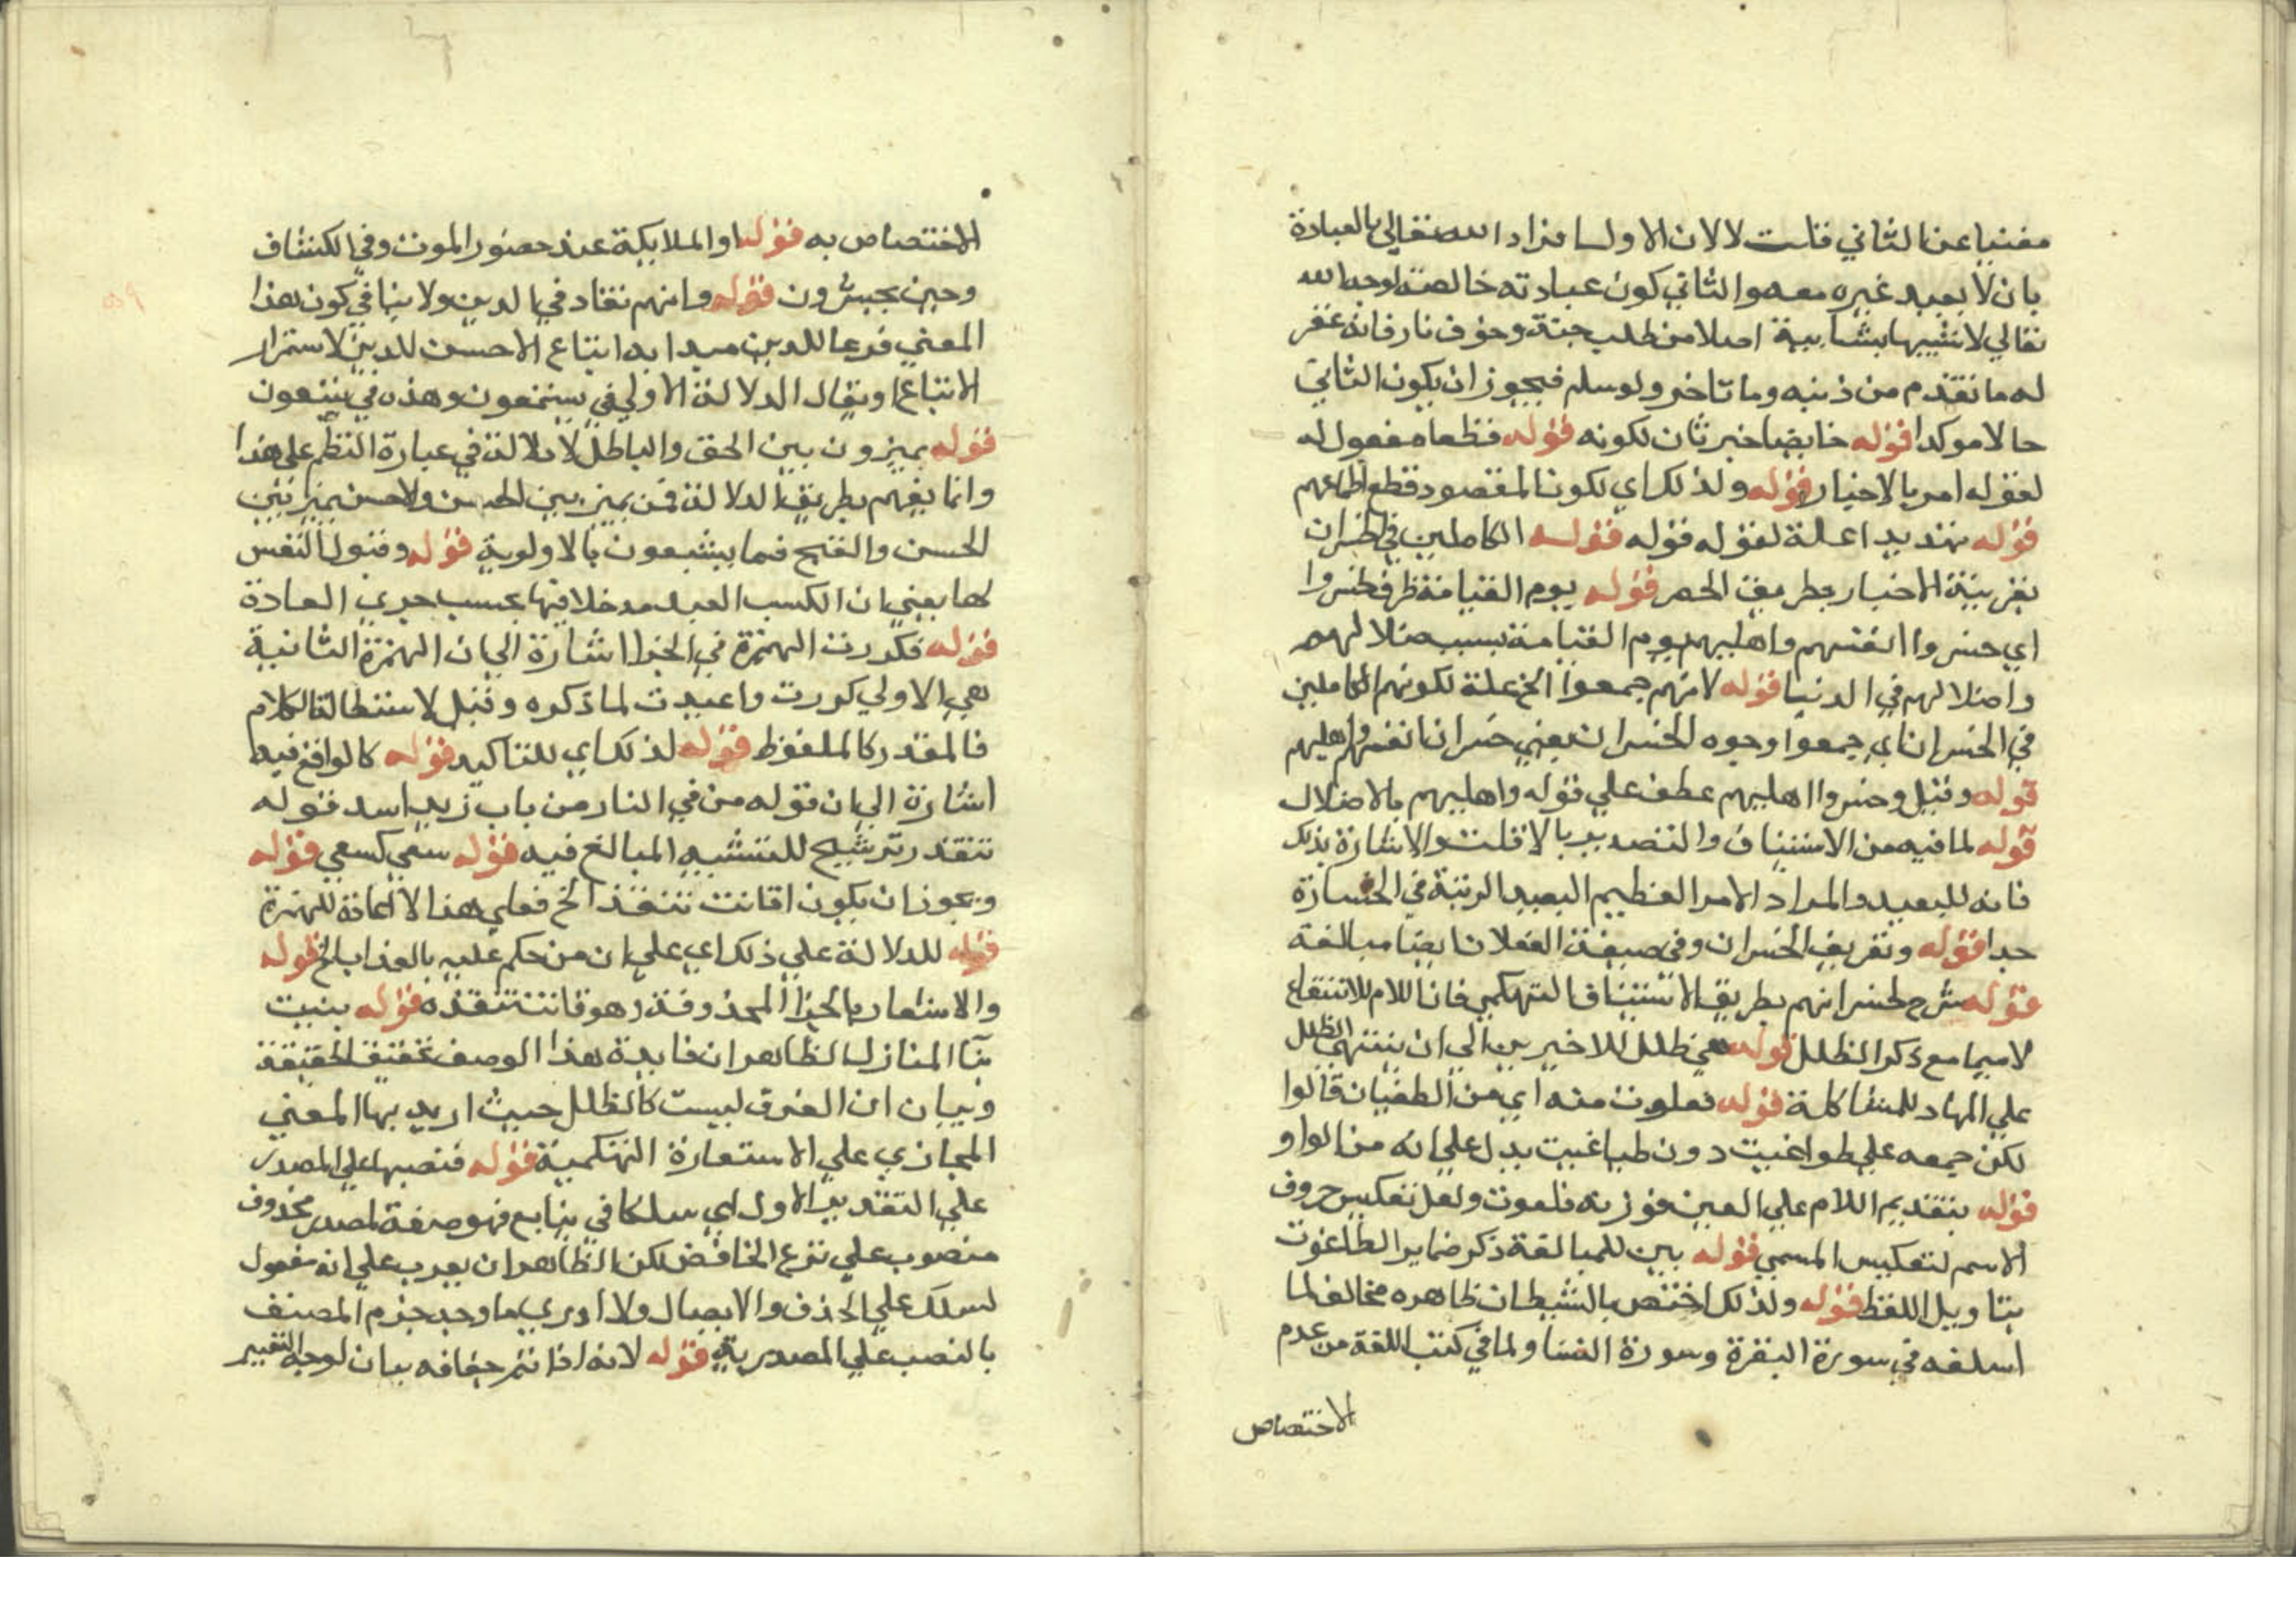 مغنيا عن الثاني قلت لا لان الاول افراد الله تعالي بالعبادة
بان لا يعبد غيره معه والثاني كون عبادته خالصة لوجه الله
تعالي لا يشيبها بشايبة اصلا من طلب جنة وخوف نار فانه غفر
له ما تقدم من ذنبه وما تاخر ولو سلم فيجوز ان يكون الثاني
حالا موكدا قوله خايضا خبر ثان لكونه قوله قطعا مفعول له
لقوله امر بالاخبار قوله ولذلك اي لكون المقصود قطع اطماعهم
قوله تهديدا علة لقوله قوله قوله الكاملين في الخسران
بقرينة الاخبار بطريق الحصر قوله يوم القيامة ظرف لخسروا
اي خسروا انفسهم واهليهم يوم القيامة بسبب ضلالهم
واضلالهم في الدنيا قوله لانهم جمعوا الخ علة لكونهم الكاملين
في الخسران اي جمعوا وجوه الخسران يعني خسران انفسهم واهليهم
قوله وقيل وخسروا اهليهم عطف علي قوله واهليهم بالاضلال
قوله لما فيه من الاستيناف والتصدير بالا قلت والاشارة بذلك
فانه للبعيد والمراد الامر العظيم البعيد الرتبة في الخسارة
جدا قوله وتعريف الخسران وفي صيغة الفعلان ايضا مبالغة
قوله شرح لخسرانهم بطريق الاستيناف التهكمي فان اللام للانتفاع
لا سيما مع ذكر الظلل قوله هي ظلل للاخرين الي ان ينتهي الظلل
علي المهاد للمشاكلة قوله فعلوت منه اي من الطغيان قالوا
لكن جمعه علي طواغيت دون طياغيت يدل علي انه من الواو
قوله بتقديم اللام علي العين فوزنه فلعوت ولعل تعكيس حروف
الاسم لتعكيس المسمي قوله بين للمبالغة ذكر ضماير الطاغوت
بتاويل اللفظ قوله ولذلك اختص بالشيطان ظاهره مخالف لما
اسلفه في سورة البقرة وسورة النسا ولما في كتب اللغة من عدم
الاختصاص
الاختصاص به قوله او الملايكة عند حضور الموت وفي الكشاف
وحين يحشرون قوله وانهم نقاد في الدين ولا ينافي كون هذا
المعني فرعا للدين مبدا به اتباع الاحسن للدين لاستمرار
الاتباع او يقال الدلالة الاولي في يستمعون وهذه في يتبعون
قوله يميزون بين الحق والباطل لا دلالة في عبارة النظم علي هذا
وانما يفهم بطريق الدلالة فمن يميز بين الحسن والاحسن يميز بين
الحسن والقبح فيما يتبعون بالاولوية قوله وقبول النفس
لها يعني ان الكسب العبد مدخلا فيها بحسب جري العادة
قوله فكررت الهمزة في الجزا اشارة الي ان الهمزة الثانية
هي الاولي كررت واعيدت لما ذكره وقيل لاستطالة الكلام
فالمقدر كالملفوظ قوله لذلك اي للتاكيد قوله كالواقع فيه
اشارة الي ان قوله من في النار من باب زيد اسد قوله
تنقذ ترشيح للتشبيه المبالغ فيه قوله سعي كسعي قوله
ويجوز ان يكون افانت تنقذ الخ فعلي هذا لا اعادة للهمزة
قوله للدلالة علي ذلك اي علي ان من حكم عليه بالعذاب الخ قوله
والاشعار بالجزا المحذوف وهو فانت تنقذه قوله بنيت
بنآ المنازل الظاهر ان فايدة هذا الوصف تحقيق الحقيقة
وبيان ان الغرف ليست كالظلل حيث اريد بها المعني
المجازي علي الاستعارة التهكمية قوله فنصبها علي المصدر
علي التقدير الاول اي سلكا في ينابيع فهو صفة لمصدر محذوف
منصوب علي نزع الخافض لكن الظاهر ان يعرب علي انه مفعول
لسلك علي الحذف والايصال ولا ادري ما وجه جزم المصنف
بالنصب علي المصدرية قوله لانه اذا تم جفافه بيان لوجه التعبير